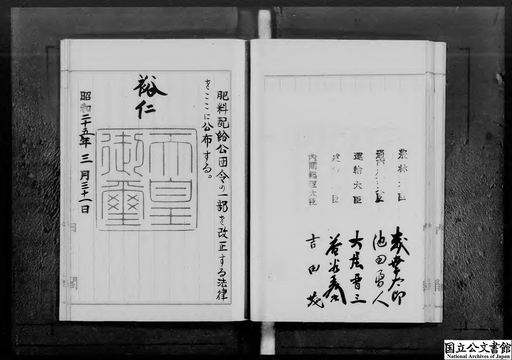 肥料配給公団令の一部を改正する法律
をここに公布する。
裕仁
天皇
御璽
昭和二十五年三月三十一日
農林大臣
池田勇人
運輸大臣 大屋晋三
内閣総理大臣 吉田茂
国立公文書館
National Archives of Japan